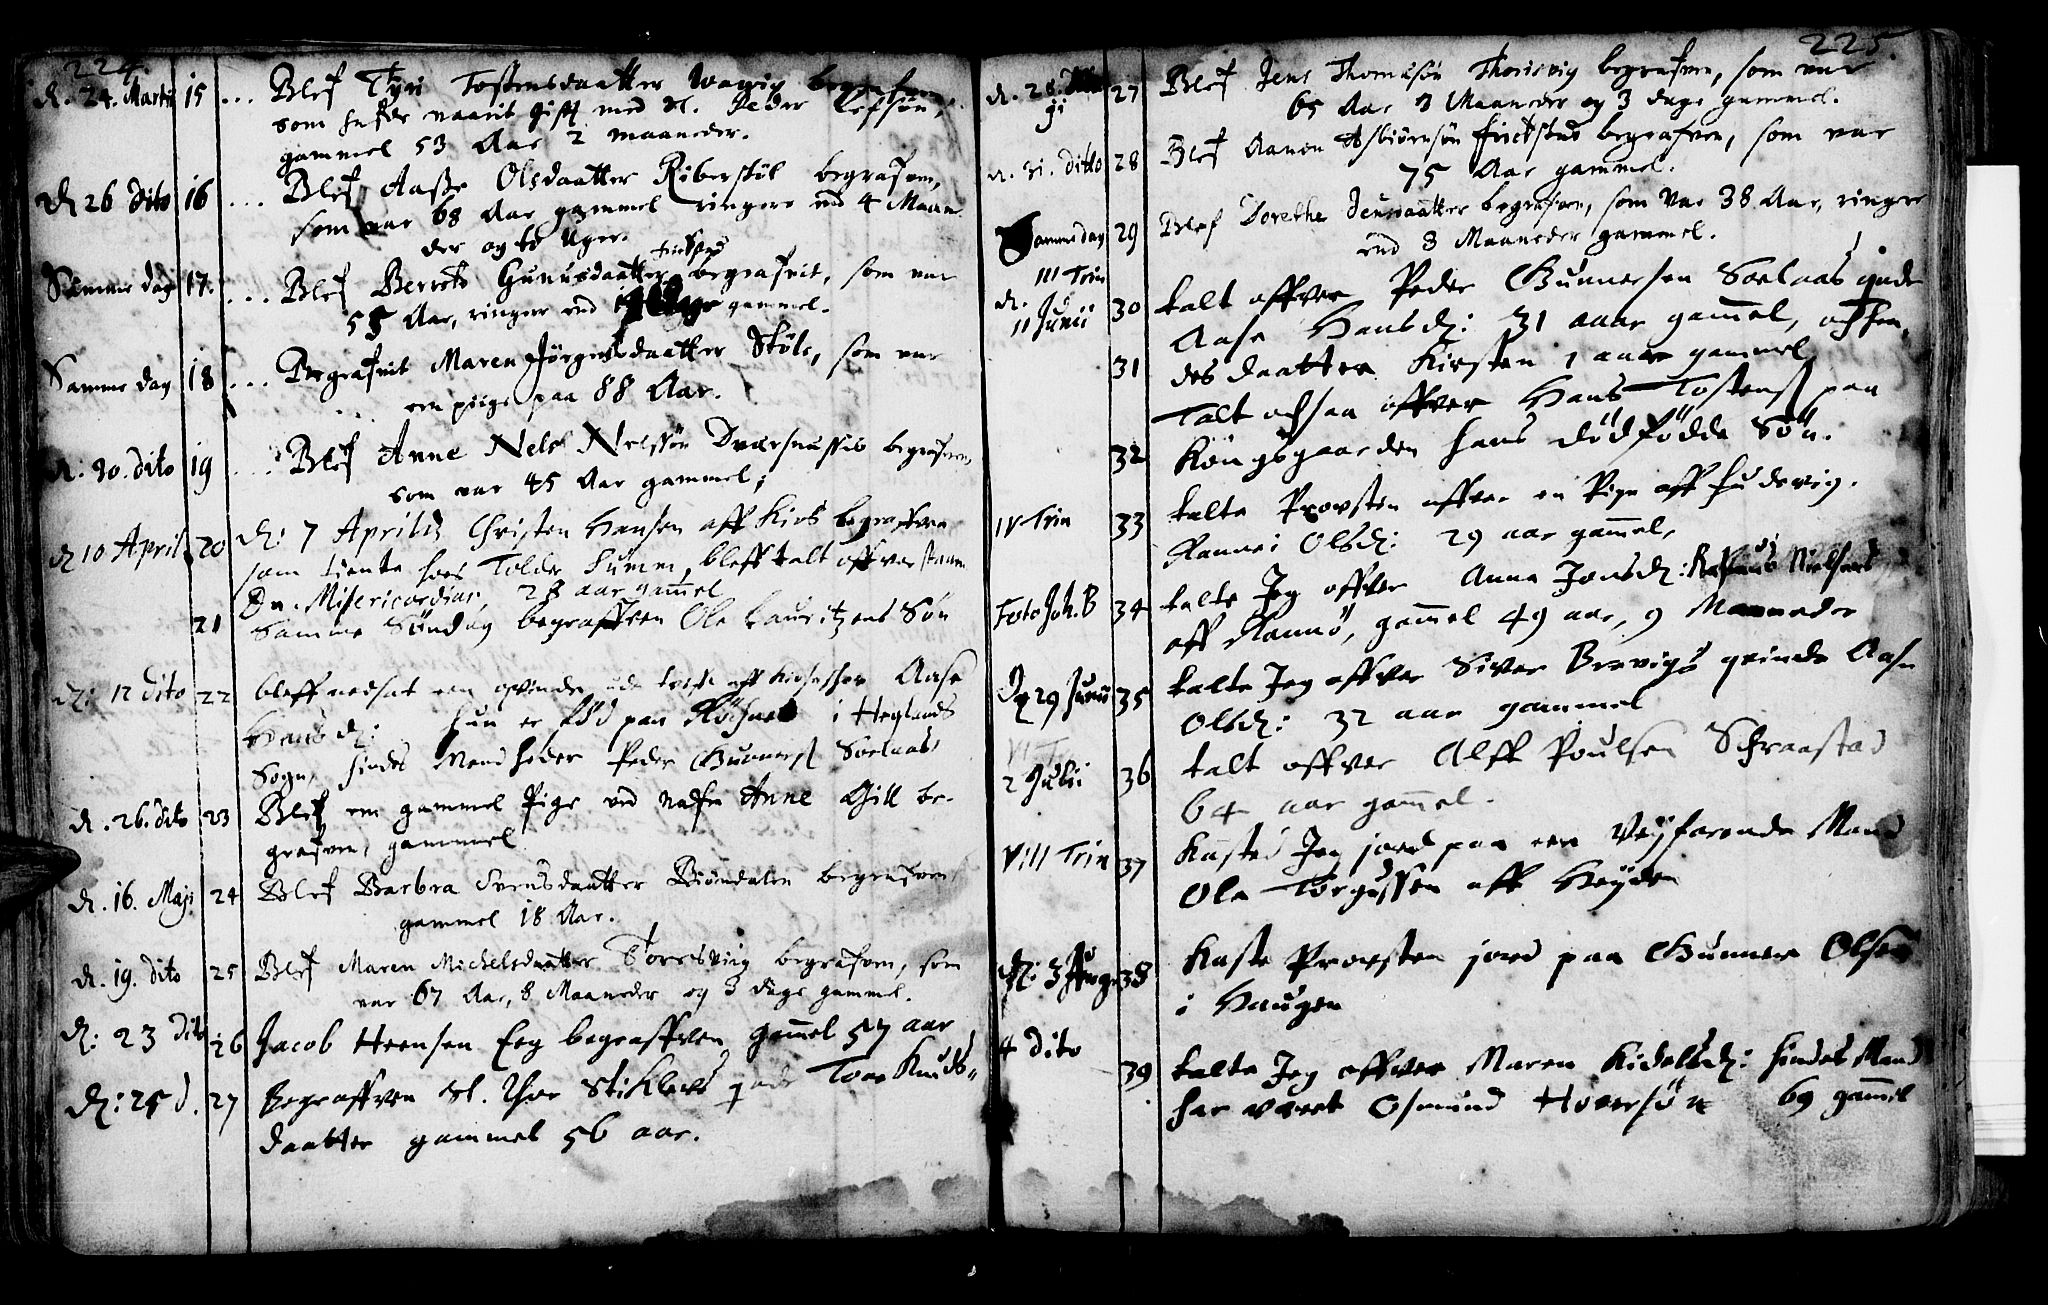 224.
d. 24. Martii 15 ... Blef Tyri Tostensdaatter Waagig begrafven,
som hafde vaarit gift med Sl. Peder Lefsøn,
gammel 53 Aar 2 maaneder.
d. 26 dito 16 ... Blef Aasse Olsdaatter Riberstøl begrafven,
som var 68 Aar gammel ringere end 4 Maan
der og to Uger.
Samme dag 17. ... Blef Berrete Gunusdaatter begrafvit, som var
58 Aar, ringer end gammel.
Samme dag 18 ... Begrafvit Maren Jörgensdaatter Støle, som var
een pige paa 88 Aar.
d. 30. dito 19 ... Blef Anne Nels Nelssøn begrafven,
som var 45 Aar gammel;
d 10 April 20 d: 7 Aprilis Christen Hansen aff begraffven
som tiente hoes Tolder Lumm, bleff talt offver
Dn. Misericordias, 23 aar gammel
21 Samme Søndag begraffven Ole Lauritzens Søn
d: 12 dito 22 bleff nedsat een qvinde Aase
Hansd: hun er fød paa i Heglands
Sogn, hindes Mand heder Peder Gunners. Sorlaas
d. 26. dito 23 Blef en gammel Pige ved nafn Anne Gill be-
grafven, gammel
d. 16. Maji 24 Blef Barbra Svensdaatter Biøndalen begrafven
gammel 18 Aar.
d. 19. dito 25 Blef Maren Michelsdaatter Torrisviig begrafven, som
var 67 Aar, 8 Maaneder og 3 dage gammel.
d: 23 dito 26 Jacob Heensen Eeg begraffven gammel 57 aar
d: 25 d. 27 begraffven Sl. Thor Stiklers Tore Knuds-
daatter gammel 56 aar.
225.
d. 28. 27 Blef Jens Thomisøn Thorisvig begrafven, som var
65 Aar 3 Maaneder og 3 dage gammel.
d. 31. dito 28 Blef Aanon Asbiørnsøn Frickstad begrafven, som var
75 Aar gammel.
Samme dag 29 Blef Dorethe Jensdaatter begrafven, som var 38 Aar, ringere
end 8 Maaneder gammel.
III Trin
d. 11 Junii 30 talt offver Peder Gunnersen Sorlaas qvinde
Aase Hansd: 31 aar gammel, och hen-
31 des daatter Kirsten 1 aar gammel
Talt ochsaa offver Hans Tostens. paa
32 Kongsgaarden hans dødfödde Søn.
IV Trin 33 talte Provsten offver en Pige aff Hudevig.
Rannei Olsd: 29 aar gammel,
Festo Joh. B 34 talte Jeg offver Anna Jonsd: Rasmus Nielsens
aff Rannø, gammel 49 aar, 9 Maaneder
d 29 Junii 35 talte Jeg offver Siver Brevigs qvinde Aase
Olsd: 32 aar gammel
VI Trin
2 Julii 36 talt offver Alff Poulsen Schraastad
64 aar gammel.
VIII Trin 37 Kasted Jeg jord paa een Veyfarende Mand
Ole Torgussen aff Heyden
d: 3 Aug 38 Kaste Provsten jord paa Gunner Olsen
i Haugen
4 dito
39 talte Jeg offver Maren Kidelsd: hindes Mand
har været Osmund Hoversøn 69 gammel